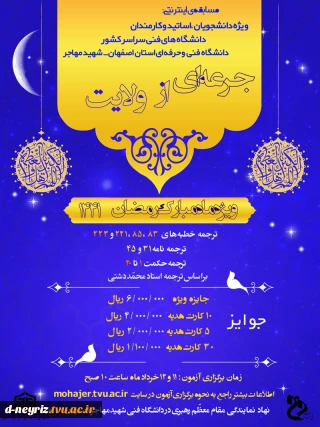 مسابقه‌ی اینترنتی:
ویژه دانشجویان، اساتید و کارمندان
دانشگاه های فنی سراسر کشور
دانشگاه فنی و حرفه‌ای استان اصفهان-شهید مهاجر
جرعه‌ای از ولایت
ویژه ماه مبارک رمضان ۱۴۴۱
ترجمه خطبه‌های ۸۳ ،۸۵ ،۲۲۱ و ۲۲۳
ترجمه نامه ۳۱ و ۴۵
ترجمه حکمت ۱ تا ۲۰
براساس ترجمه استاد محمد دشتی
جوایز
جایزه ویژه ۶/۰۰۰/۰۰۰ ریال
۱۰ کارت هدیه ۴/۰۰۰/۰۰۰ ریال
۵ کارت هدیه ۲/۰۰۰/۰۰۰ ریال
۳۰ کارت هدیه ۱/۱۰۰/۰۰۰ ریال
زمان برگزاری آزمون: ۱۱ و ۱۲ خرداد ماه ساعت ۱۰ صبح
اطلاعات بیشتر راجع به نحوه برگزاری آزمون در سایت mohajer.tvu.ac.ir
نهاد نمایندگی مقام معظم رهبری در دانشگاه فنی شهید مهاجر
d-neyriz.tvu.ac.ir